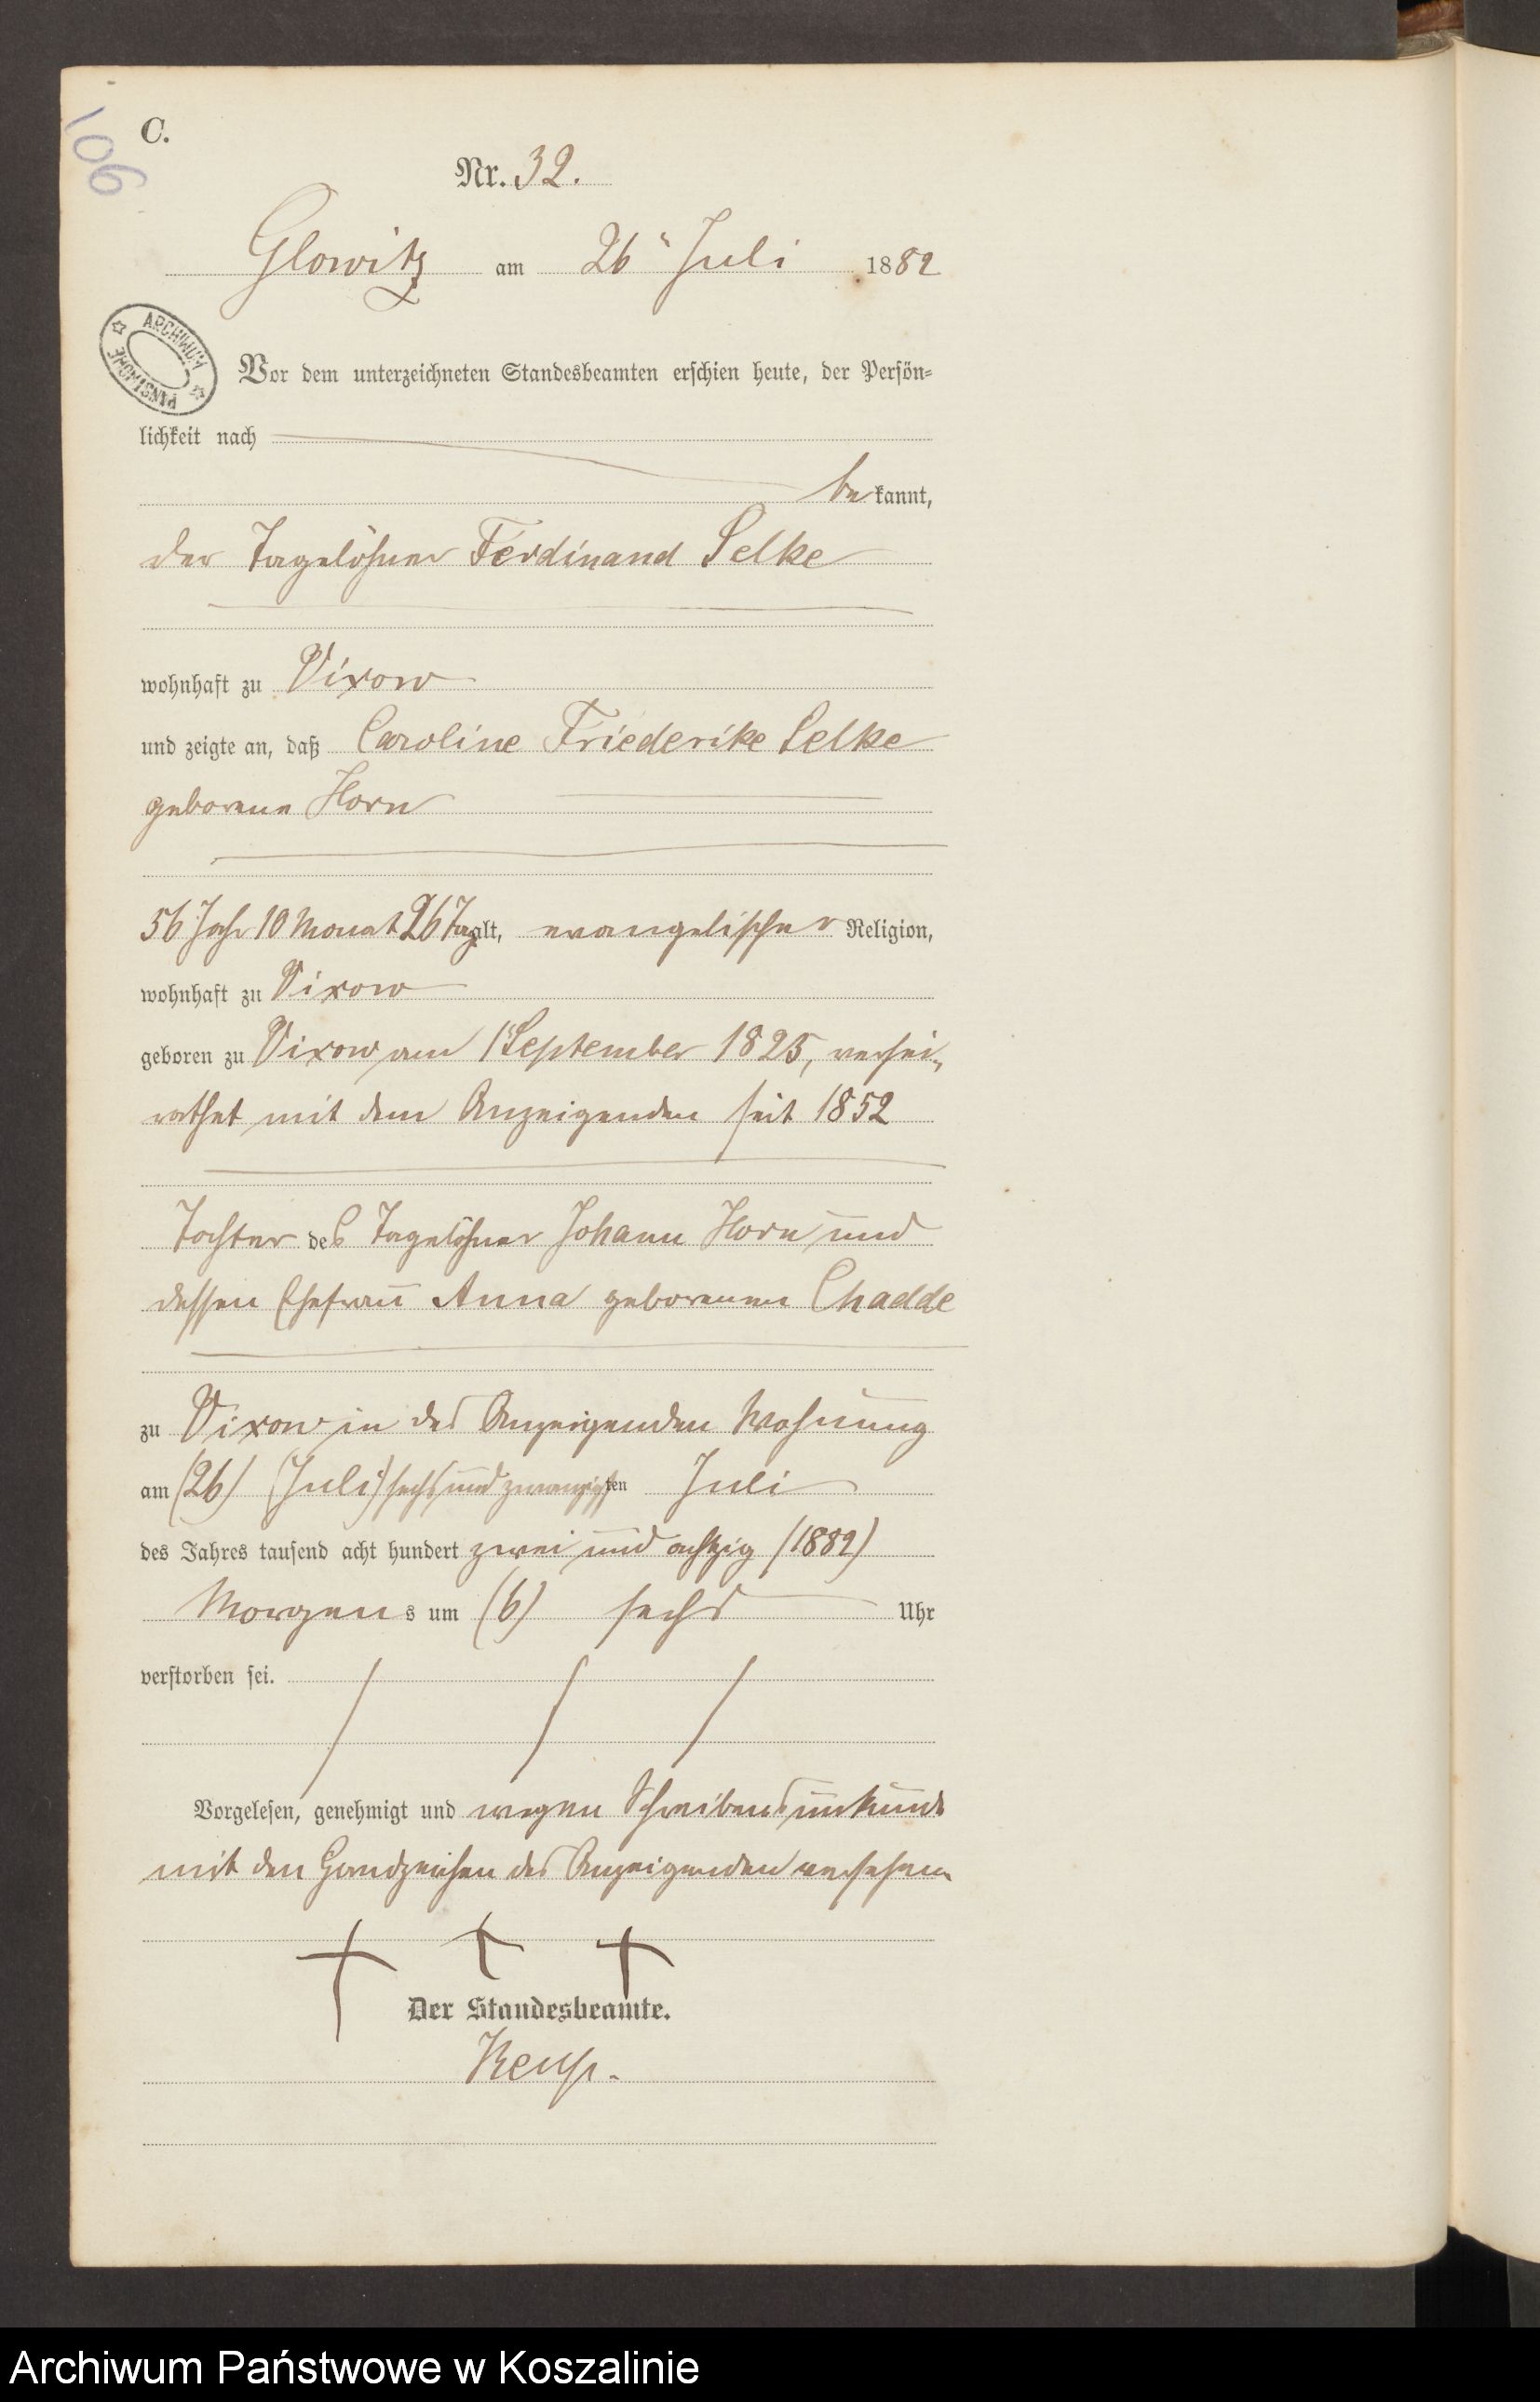 106
C.
Nr. 32.
Glowitz am 26ᵗ Juli 1882
ARCHIWUM PAŃSTWOWE
Vor dem unterzeichneten Standesbeamten erschien heute, der Persön-
lichkeit nach
bekannt,
der Tagelöhner Ferdinand Selke
wohnhaft zu Vixow
und zeigte an, daß Caroline Friederike Selke
geborene Horn
56 Jahr 10 Monat 26 Tag alt, evangelischer Religion,
wohnhaft zu Vixow
geboren zu Vixow am 1ᵗ September 1825, verhei-
rathet mit dem Anzeigenden seit 1852
Tochter des Tagelöhner Johann Horn und
dessen Ehefrau Anna geborenen Chadde
zu Vixow in des Anzeigenden Wohnung
am (26) (Juli) sechs und zwanzigsten Juli
des Jahres tausend acht hundert zwei und achtzig (1882)
Morgens um (6) sechs Uhr
verstorben sei.
Vorgelesen, genehmigt und wegen Schreibensunkunde
mit den Handzeichen des Anzeigenden versehen
† † †
Der Standesbeamte.
Archiwum Państwowe w Koszalinie